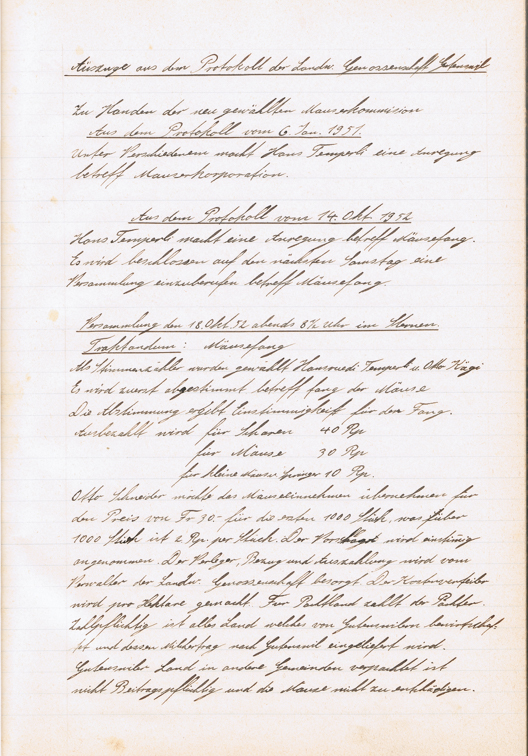 Auszuge aus dem Protokoll der Landw. Genossenschaft Gutenswil
Zu Handen der neu gewählten Mauserkommision
Aus dem Protokoll vom 6. Jan. 1951.
Unter Verschiedenem macht Hans Temperli eine Anregung
betreff Mauserkorporation.
Aus dem Protokoll vom 14. Okt. 1952
Hans Temperli macht eine Anregung betreff Mäusefang.
Es wird beschlossen auf den nächsten Samstag eine
Versammlung einzuberufen betreff Mäusefang.
Versammlung den 18. Okt. 52 abends 8½ Uhr im Sternen.
Traktandum: Mäusefang
Als Stimmenzähler wurden gewählt Hansruedi Temperli u. Otto Kägi
Es wird zuerst abgestimmt betreff fang der Mäuse
Die Abstimmung ergibt Einstimmigkeit für den Fang.
Ausbezahlt wird für Scharen 40 Rp
für Mäuse 30 Rp
für kleine Mäuse 10 Rp.
Otto Schneider möchte das Mäuseeinnehmen übernehmen für
den Preis von Fr 30.- für die ersten 1000 Stück, was über
1000 Stück ist 2 Rp. per Stück. Der Vorschlag wird einstimmig
angenommen. Der Verleger, Bezug und Auszahlung wird vom
Verwalter der Landw. Genossenschaft besorgt. Der Kostenverteiler
wird pro Hektare gemacht. Für Pachtland zahlt der Pächter.
Zahlpflichtig ist alles Land welches von Gutenswilern bewirtschaf-
tet und dessen Milchertrag nach Gutenswil eingeliefert wird.
Gutenswiler Land in andere Gemeinden verpachtet ist
nicht Beitragspflichtig und die Mäuse nicht zu entschädigen.